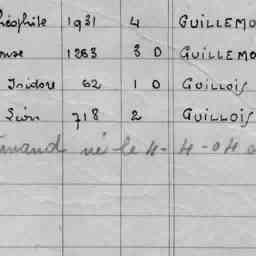 héophile 1931 4 GUILLEMO
1263 3 0 GUILLEMO
Isidore 62 1 0 GUILLOIS
Léon 718 2 GUILLOIS
né le 4-4-04